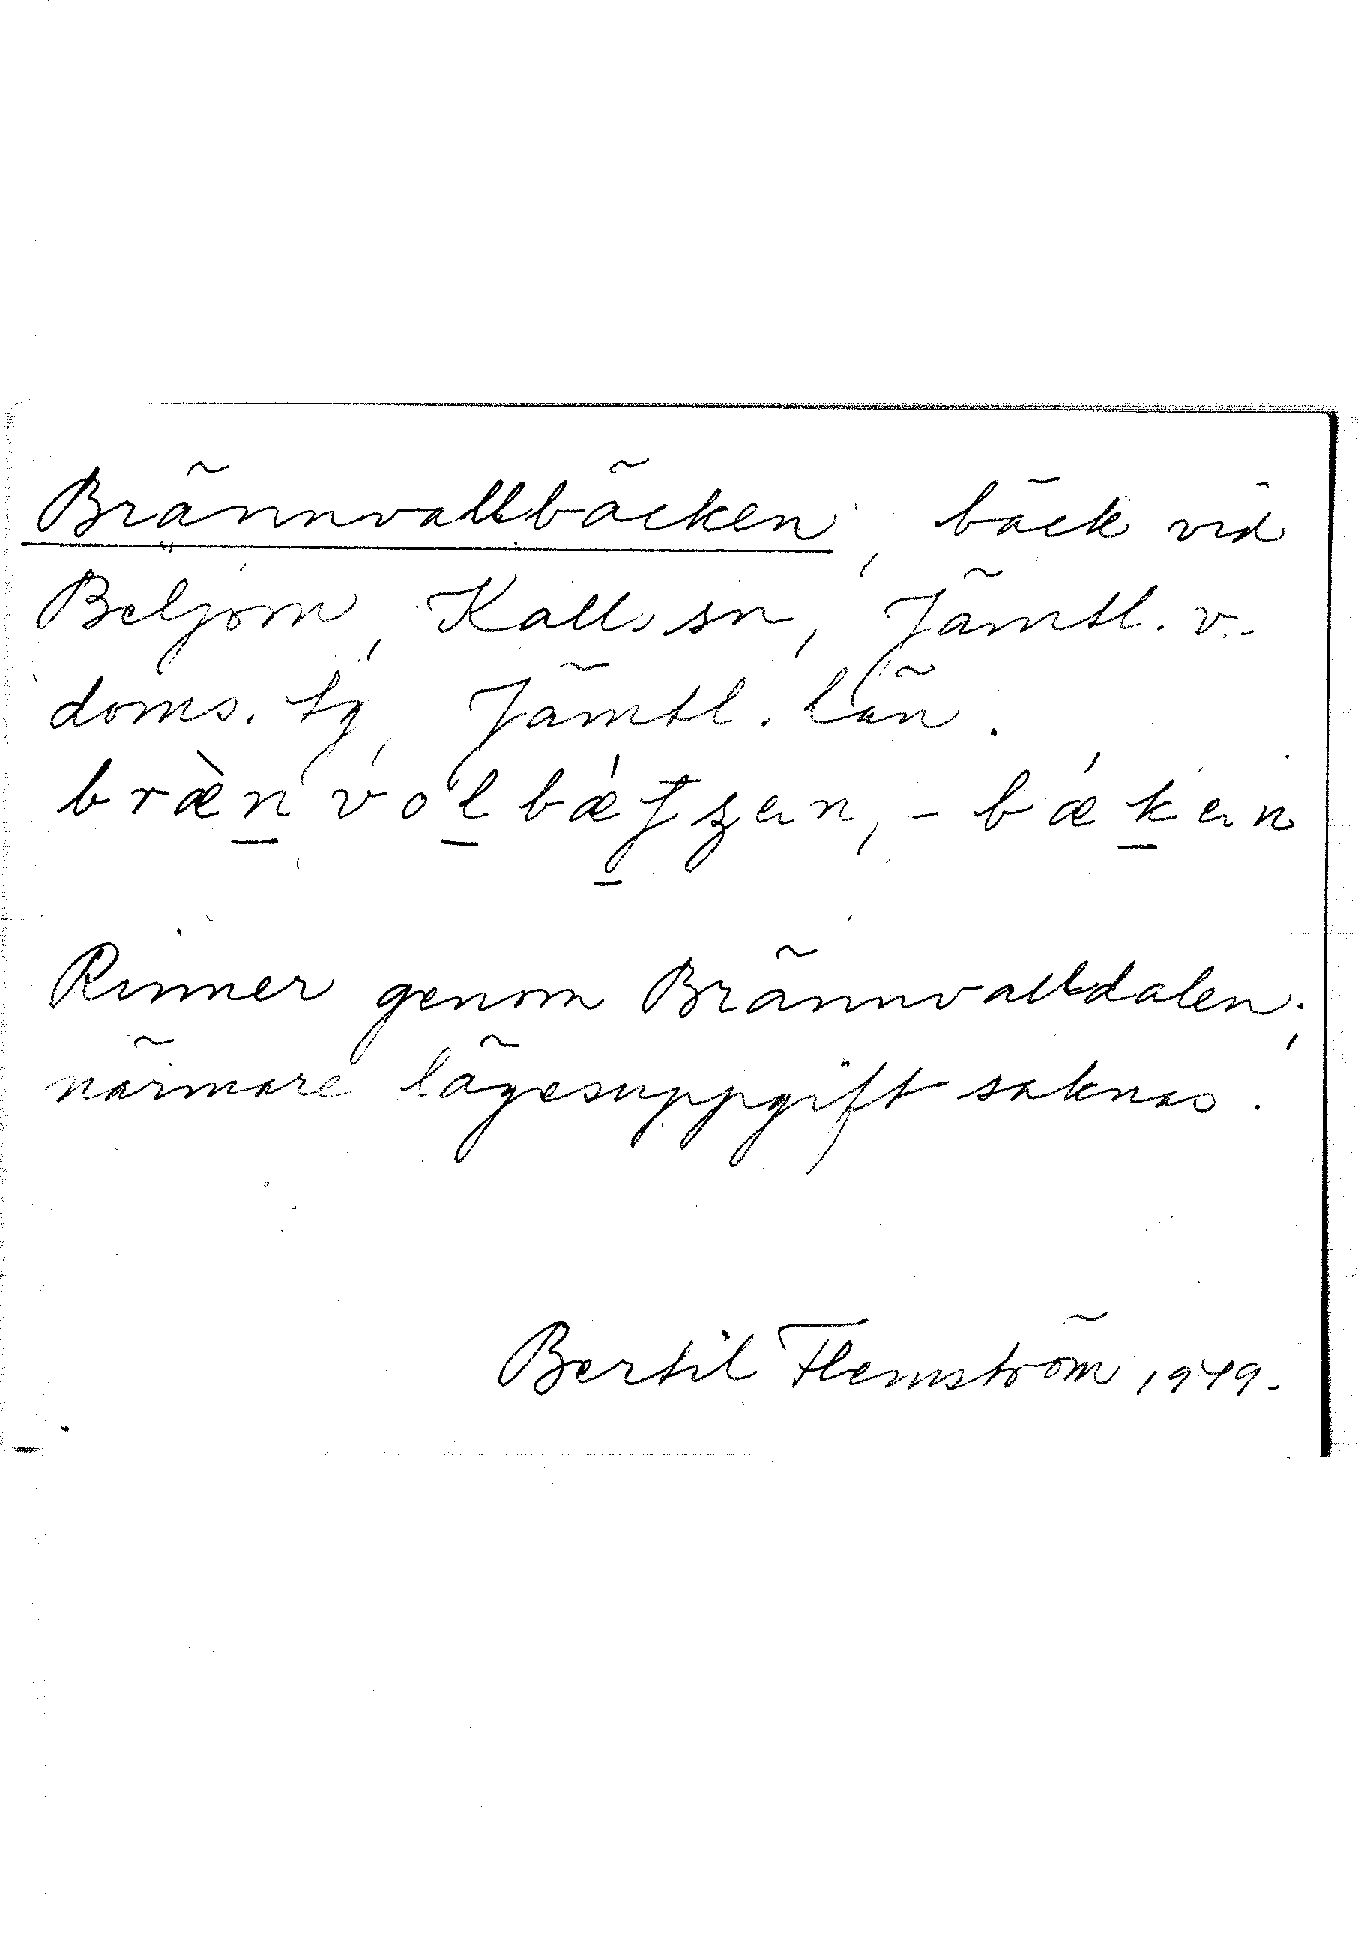 Brännvallbäcken, bäck vid
Beljom, Kalls sn, Jämtl. v.
doms. tg, Jämtl. län.
bræ̀n̲volbǽt̲ʂen, -bǽk̲en
Rinner genom Brännvalldalen;
närmare lägesuppgift saknas.
Bertil Flemström 1949.